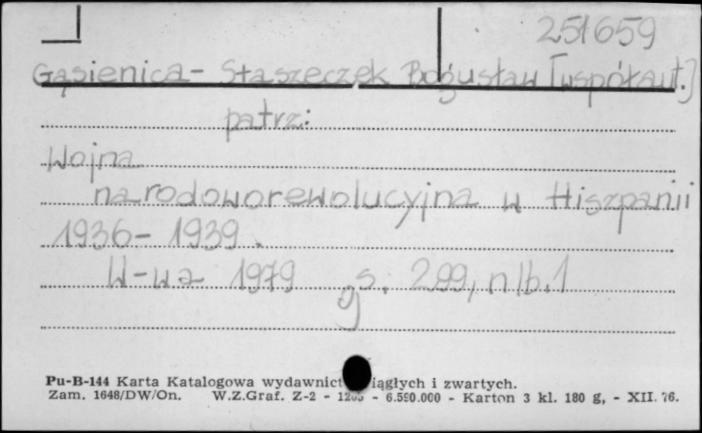 251659
Gąsienica - Staszeczek Bogusław [współaut.]
patrz:
Wojna
narodoworewolucyjna w Hiszpanii
1936 - 1939.
W-wa 1979 s. 299, nlb. 1
Pu-B-144 Karta Katalogowa wydawnict iągłych i zwartych.
Zam. 1648/DW/On. W.Z.Graf. Z-2 - - 6.590.000 - Karton 3 kl. 180 g, - XII. 76.